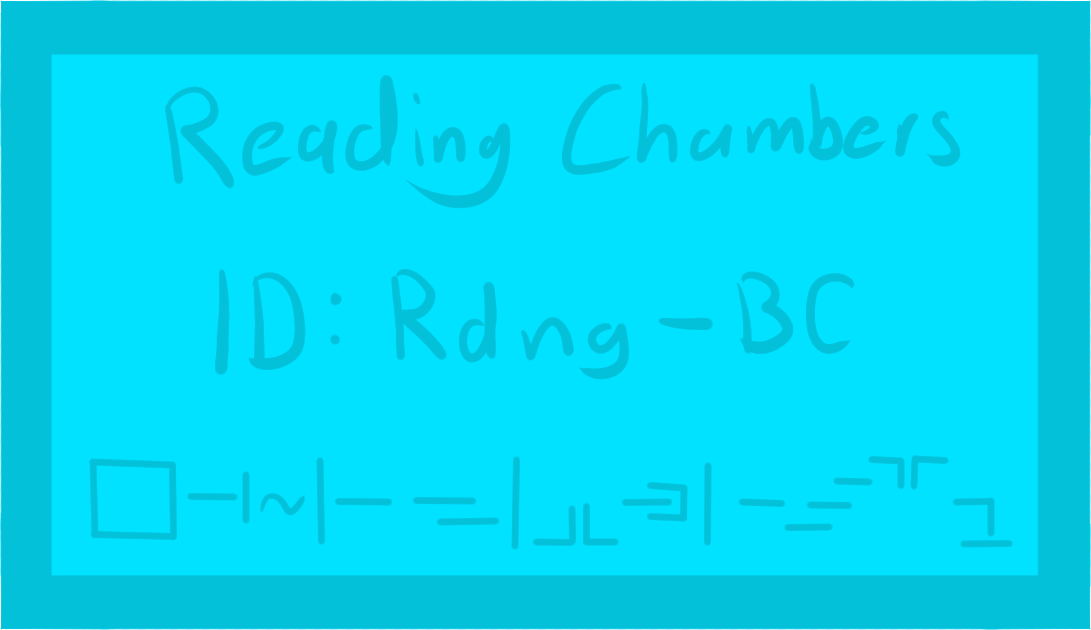 Reading Chambers
ID: Rdng-BC